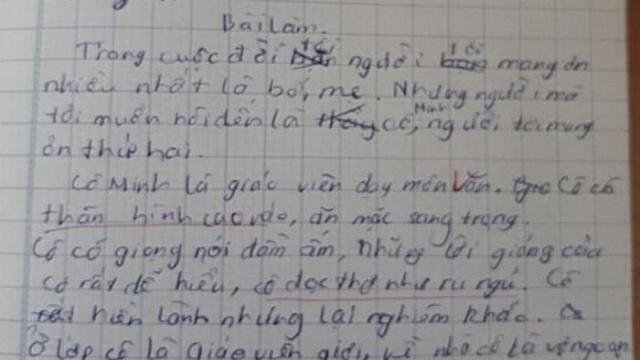 Bài làm.
Trong cuộc đời tôi người tôi mang ơn
nhiều nhất là bố, mẹ. Nhưng người mà
tôi muốn nói đến là cô Minh, người tôi mang
ơn thứ hai.
Cô Minh là giáo viên dạy môn Văn. Cô có
thân hình cao ráo, ăn mặc sang trọng.
Cô có giọng nói đầm ấm, những lời giảng của
cô rất dễ hiểu, cô đọc thơ như ru ngủ. Cô
rất hiền lành nhưng lại nghiêm khắc.
Ở lớp cô là giáo viên giỏi, về nhà cô là